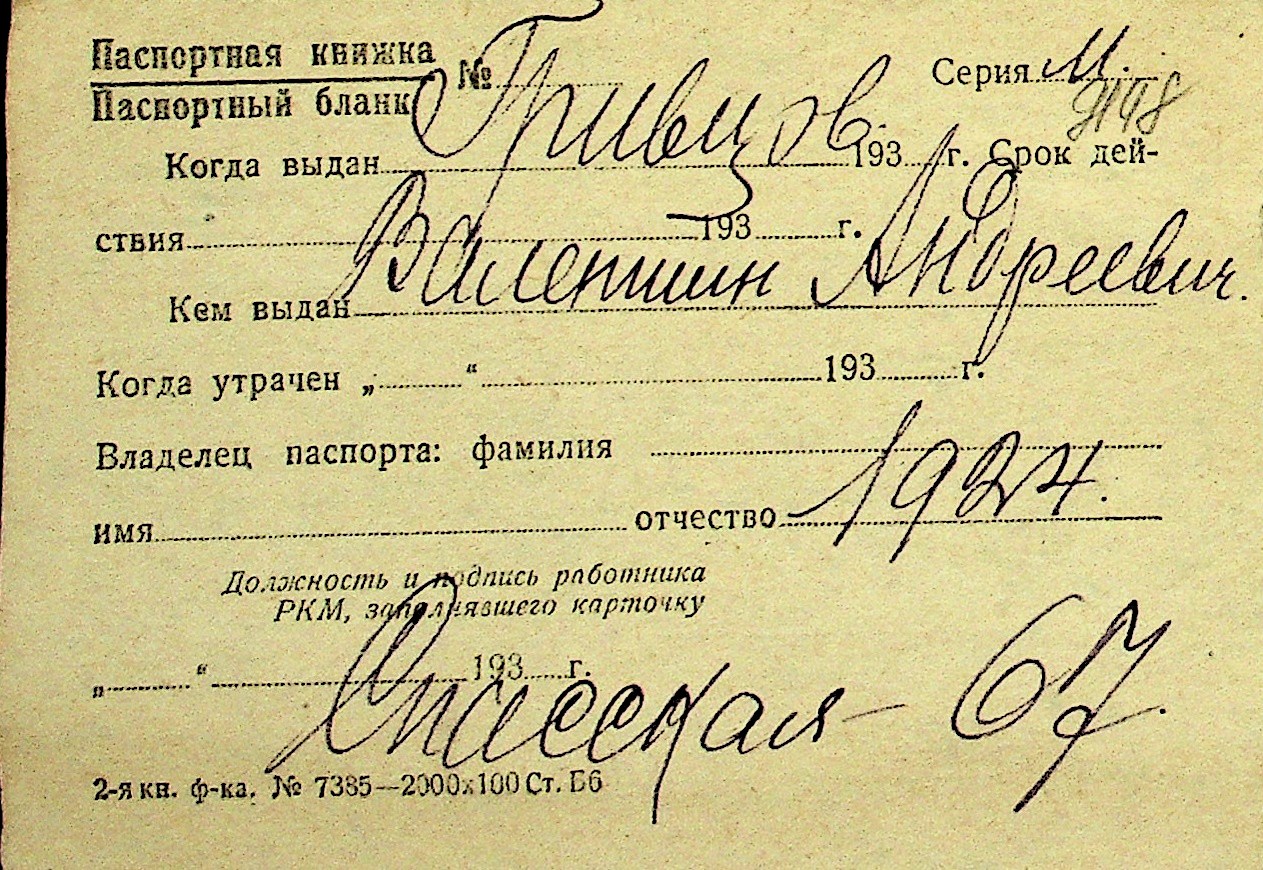 Паспортная книжка
Паспортный бланк № Серия М.
Гривцов 9148
Когда выдан 193 г. Срок дей-
ствия 193 г.
Валентин Андреевич.
Кем выдан
Когда утрачен „ “ 193 г.
Владелец паспорта: фамилия
1924.
имя отчество
Должность и подпись работника
РКМ, заполнявшего карточку
„ “ 193 г.
Спасская – 67.
2-я кн. ф-ка. № 7385—2000х100 Ст. Б6